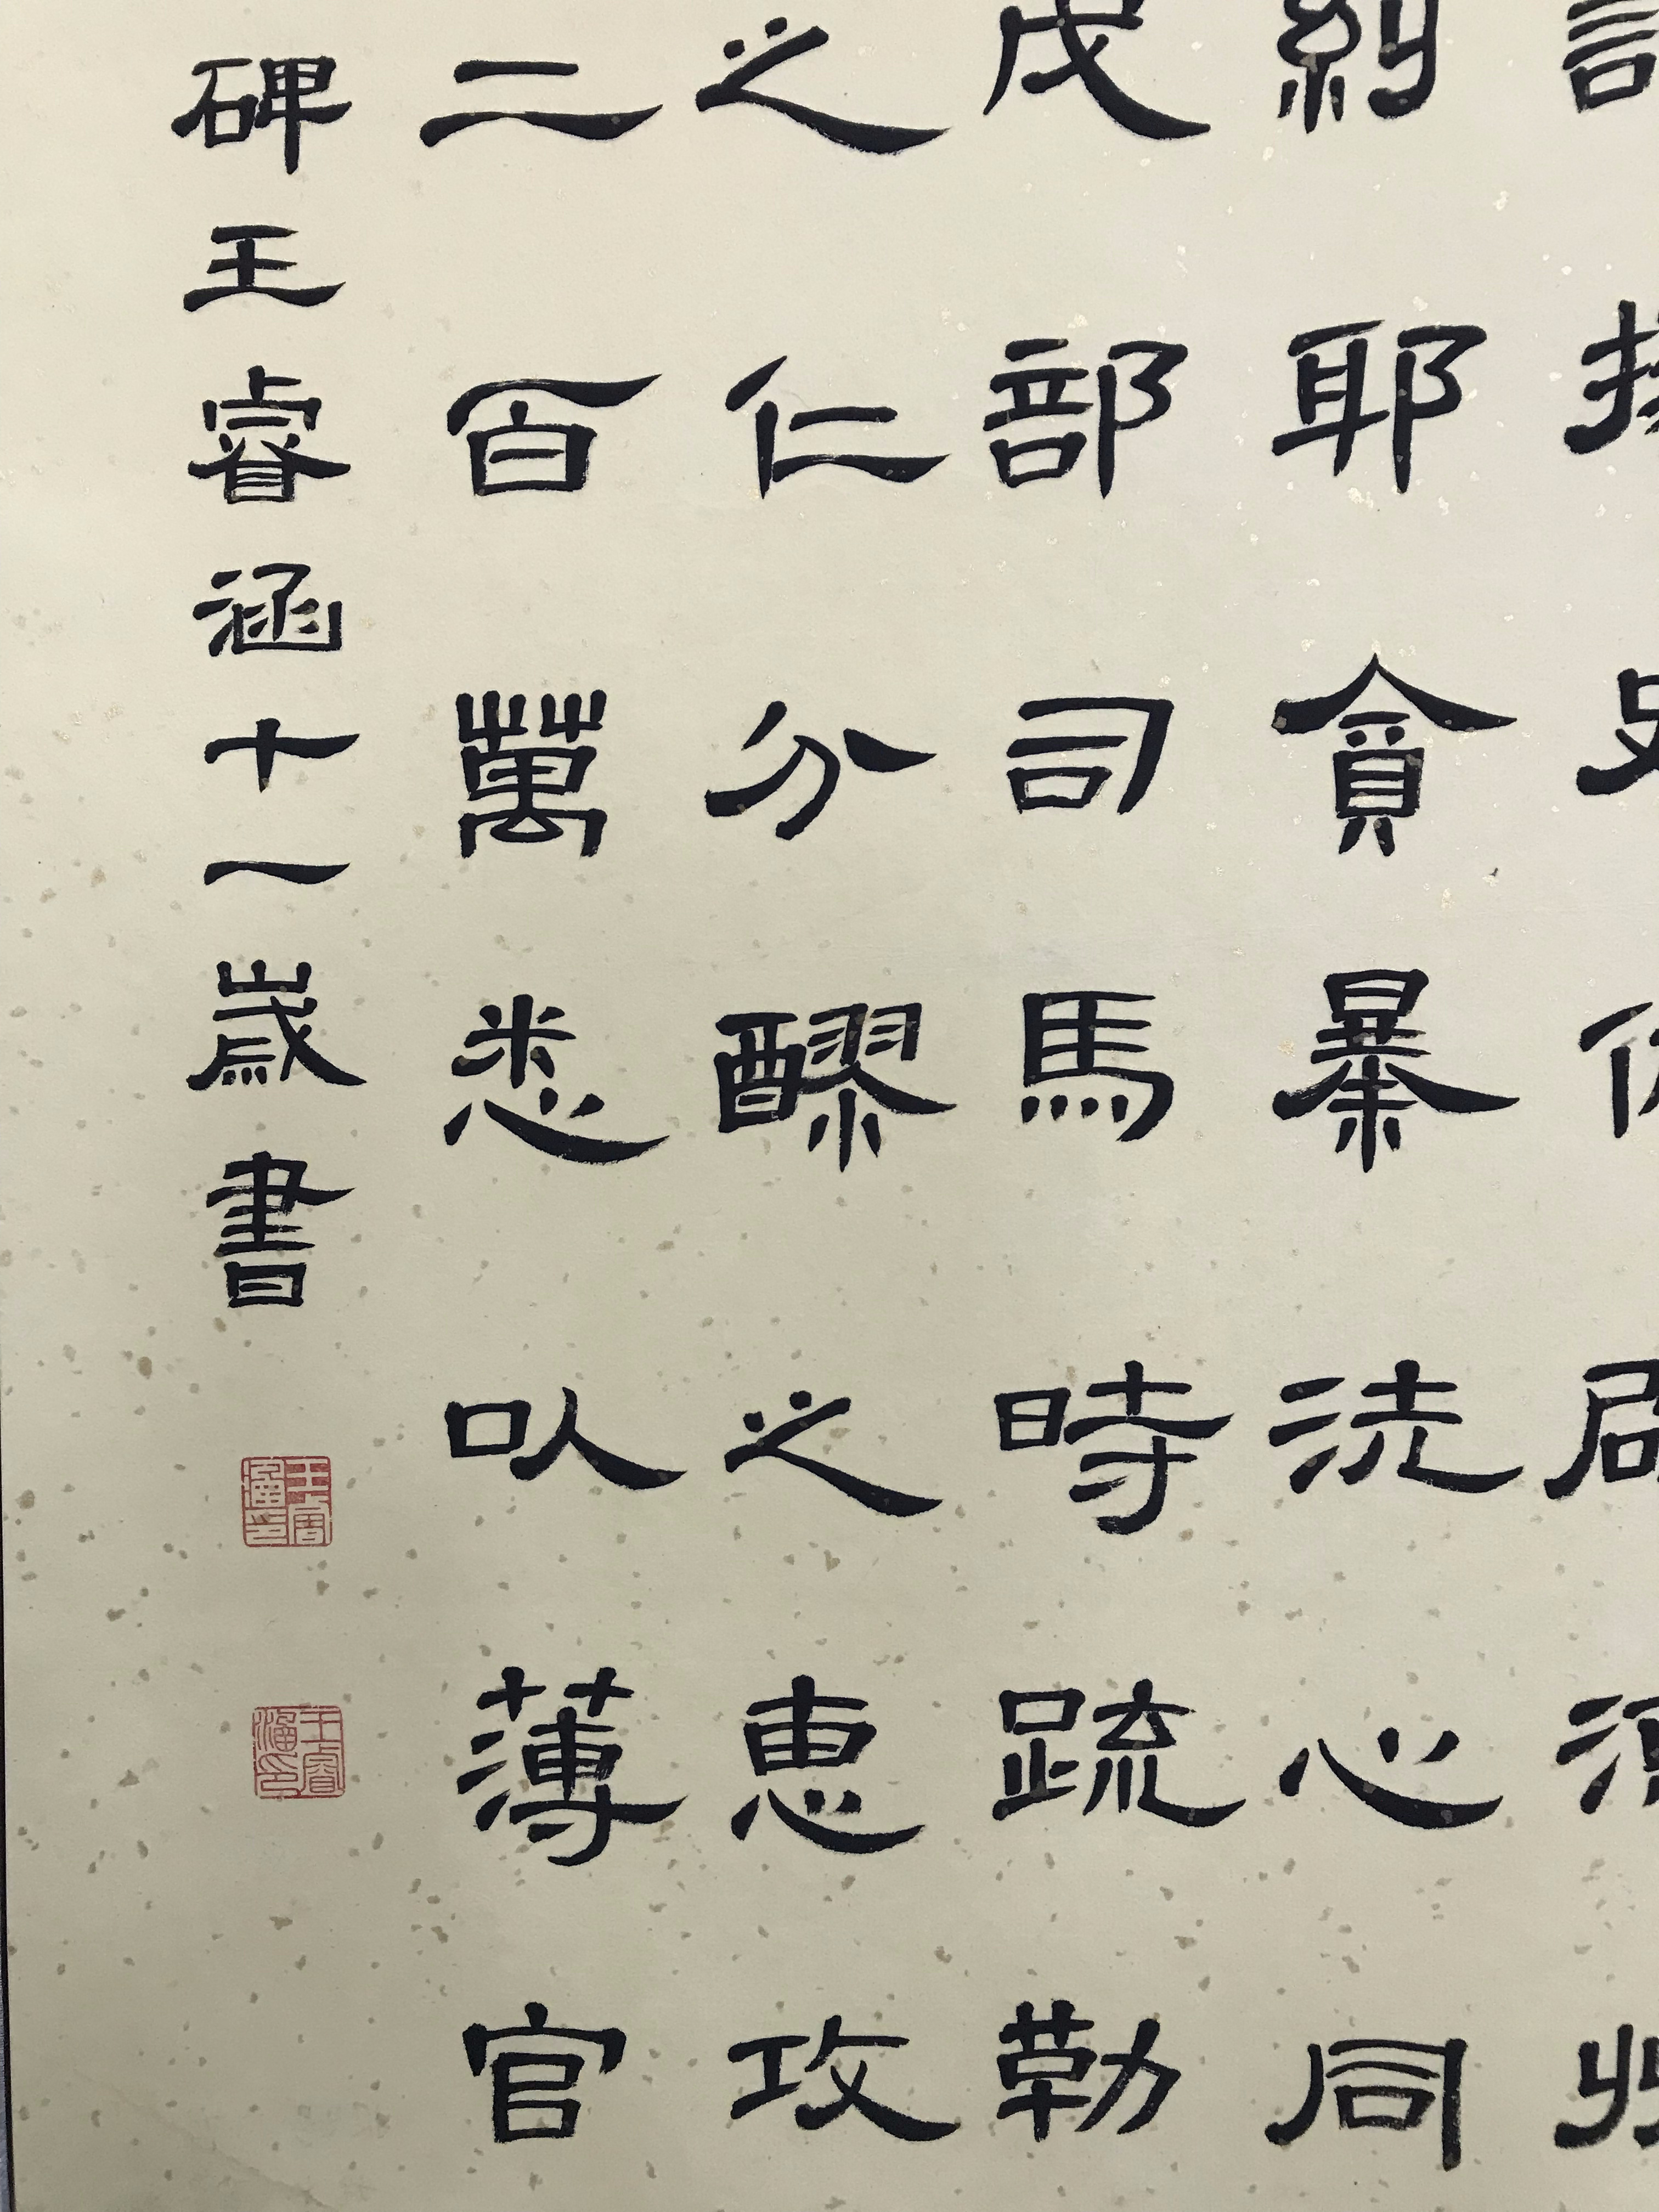 糾耶貪暴洗心同
戊部司馬時疏勒
之仁分醪之惠攻
二百萬悉以薄官
碑王睿涵十一歲書